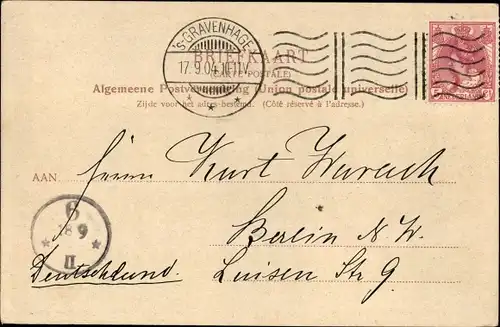 'S-GRAVENHAGE
17.9.04.10-11V
BRIEFKAART
(CARTE POSTALE)
Algemeene Postvereeniging (Union postale universelle)
Zijde voor het adres bestemd. (Côté réservé à l'adresse.)
AAN Herrn Kurt
Berlin N. W.
Luisen Str 9
Deutschland.
6
18 9
II